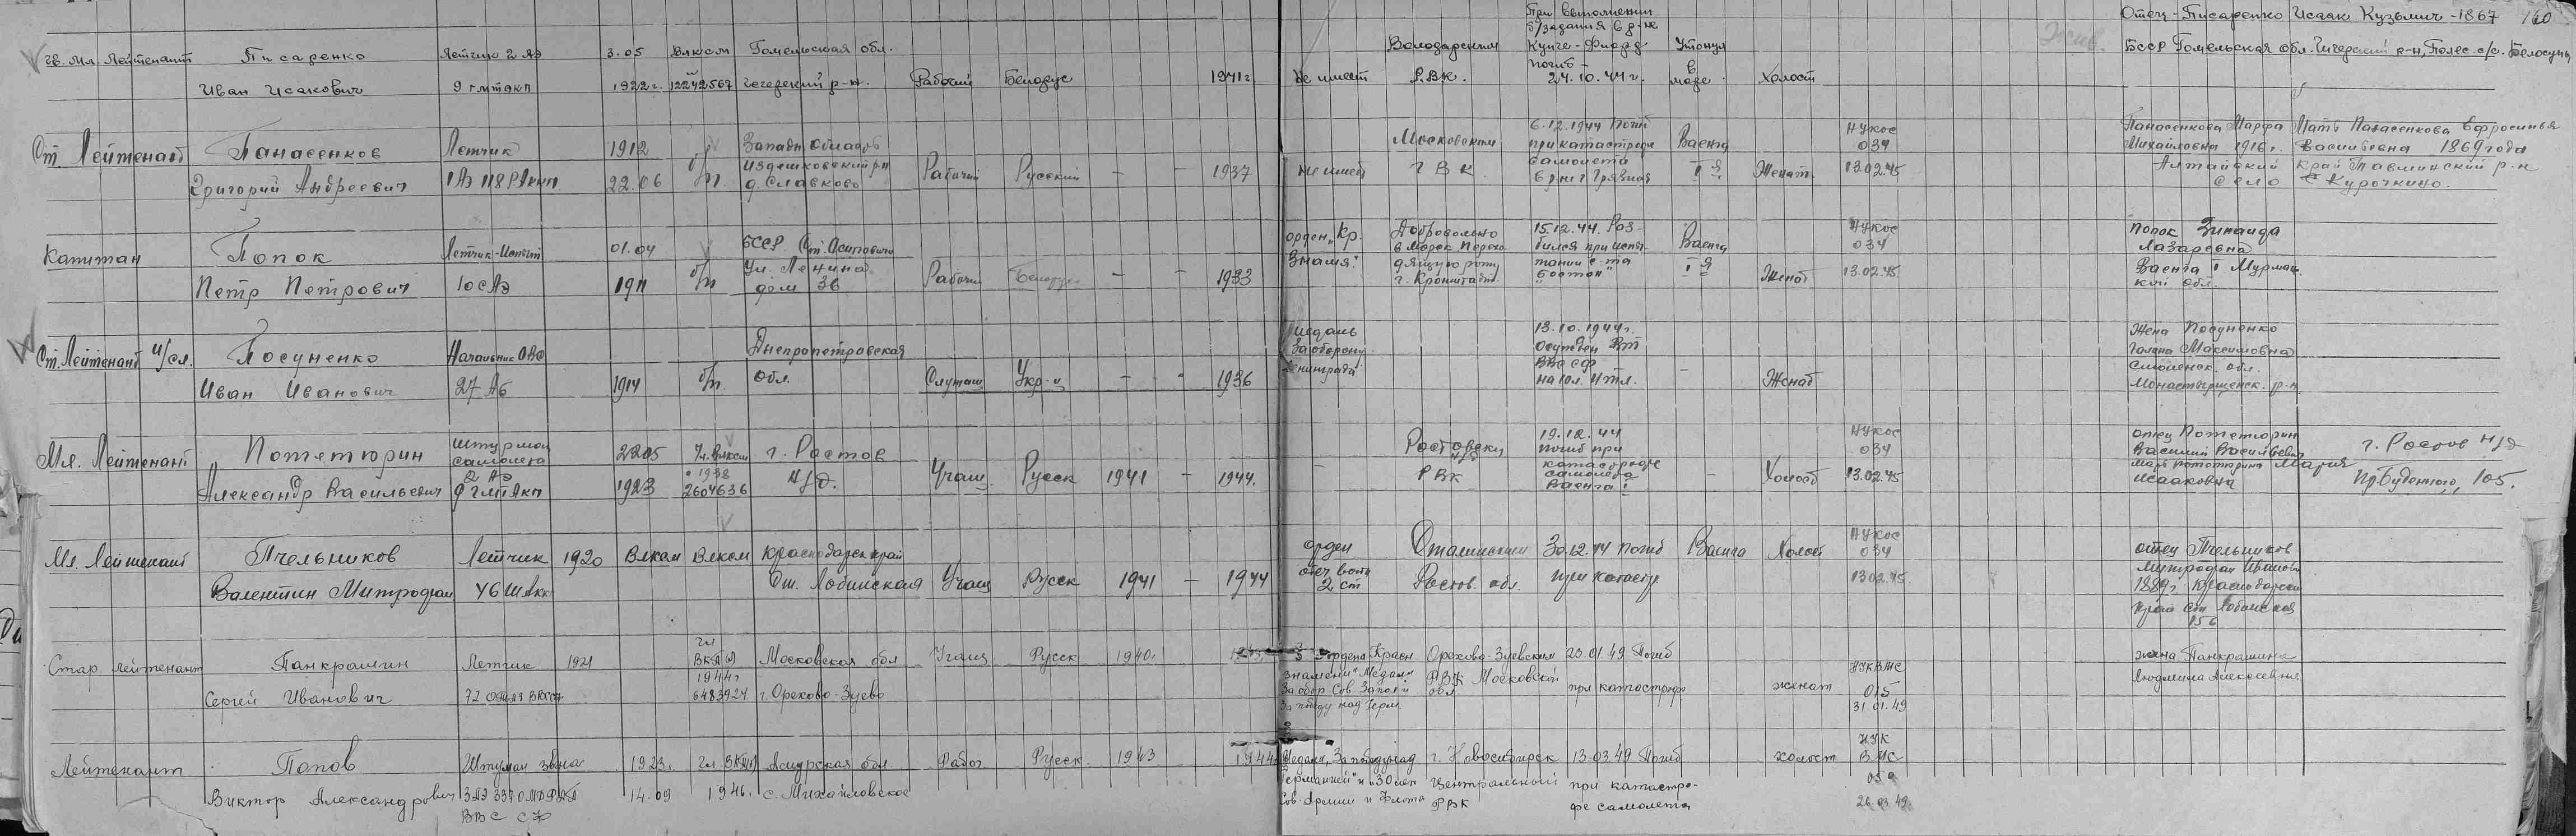 Гв. Мл. Лейтенант Писаренко Летчик 2 АЭ 3.05 ВЛКСМ Гомельская обл. Володарским При выполнении б/задания в р-не Кунге-Фиорд погиб 24.10.44 г. Утонул в море Отец - Писаренко Исаак Кузьмич - 1867 160
Иван Исакович 9 гмтакп 1922 г. 12242567 Чечерский р-н. Рабочий Белорус 1941 г. Не имеет РВК. Холост БССР Гомельская обл. Чечерский р-н, Полес. с/с.
Ст. Лейтенант Панасенков Летчик 1912 б/п. Западн. Областъ Московским 6.12.1944 Погиб при катастрофе самолета в р-не г Грязная Ваенга НУкос 034 Панасенкова Марфа Михайловна 1916 г. Мать Панасенкова Ефросинья Васильевна 1869 года
Григорий Андреевич 1 АЭ 118 РАкп 22.06 Издешковский р-н д. Славково Рабочий Русский — — 1937 не имеет ГВК I я Женат 13.02.45 Алтайский край р-н село Курочкино.
Капитан Попок Летчик-Испыт 01.04 б/п БССР Ст. Осиповичи орден „Кр. Знамя". Добровольно в Морск. г. Кронштадт 15.12.44. Разбился при испытании с-та „Бостон" Ваенга НУкос 034 Попок Зинаида Лазаревна
Петр Петрович 10 с АЭ 1911 Ул. Ленина дом 36 Рабочий Белорус — — 1933 I я Женат 13.02.45 Ваенга I Мурманской обл.
Ст. Лейтенант и/сл. Посуненко Начальник ОВС Днепропетровская медаль За оборону Ленинграда 13.10.1944 г. Осужден ВТ ВВС СФ Жена Посуненко Галина Максимовна
Иван Иванович 27 АБ 1914 б/п. обл. Служащ Укр-ц — — 1936 на 10 л. ИТЛ. — Женат Смоленск. обл. Монастырщенск. р-н
Мл. Лейтенант Потетюрин Штурман самолета 2 АЭ 22.05 Чл. ВЛКСМ г. Ростов Ростовским н/д 19.12.44 погиб при катастрофе самолета Ваенга I НУкос 034 отец Потетюрин Василий Васильевич г. Ростов н/д
Александр Васильевич 9 гмтакп 1923 1938 2604636 н/д. Учащ. Русск 1941 — 1944. РВК — Холост 13.02.45 мать Потетюрина Мария Исааковна пр. Буденного, 105.
Мл. Лейтенант Пчельников Летчик 1920 Влксм Влксм Краснодарск край орден отеч войн 2 ст Сталинским 30.12.44 погиб Ваенга Холост НУкос 034 отец Пчельников
Валентин Митрофан 46 ШАкп Ст. Лобинская Учащ Русск 1941 — 1944 Ростов. обл. при катастр 13.02.45. Митрофан Иванович 1889 г. Краснодарский край ст. Лобинская 156
Стар. лейтенант Панкрашин Летчик 1921 чл ВКП(б) 1944 г Московская обл Учащ Русск 1940 г. 1943 3 ордена Красн Знамени Медали За обор. Сов. Заполя За победу над Герм. Орехово-Зуевским 23.01.49 Погиб НУКВМС жена Панкрашина Людмила Алексеевна
Сергей Иванович 72 6483924 г. Орехово-Зуево РВК Московской обл при катастрофе женат 015 31.01.49
Лейтенант Попов Штурман звена 1923. Чл ВКП(б) Амурская обл. Рабоч Русск. 1943 1944 Медали „За победу над Германией" и „30 лет Сов. Армии и Флота г. Новосибирск 13.03.49 Погиб холост НУК ВМС
Виктор Александрович 3 АЭ ВВС СФ 14.09 1946. с. Михайловское Центральный РВК при катастрофе самолета 059 26.03.49.